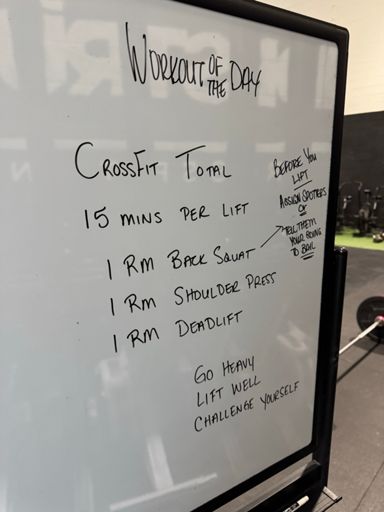 WORKOUT OF THE DAY
CROSSFIT TOTAL
15 MINS PER LIFT
1 RM BACK SQUAT
1 RM SHOULDER PRESS
1 RM DEADLIFT
BEFORE YOU
LIFT
ASSIGN SPOTTERS
OR
TELL THEM
YOUR GOING
TO BAIL
GO HEAVY
LIFT WELL
CHALLENGE YOURSELF